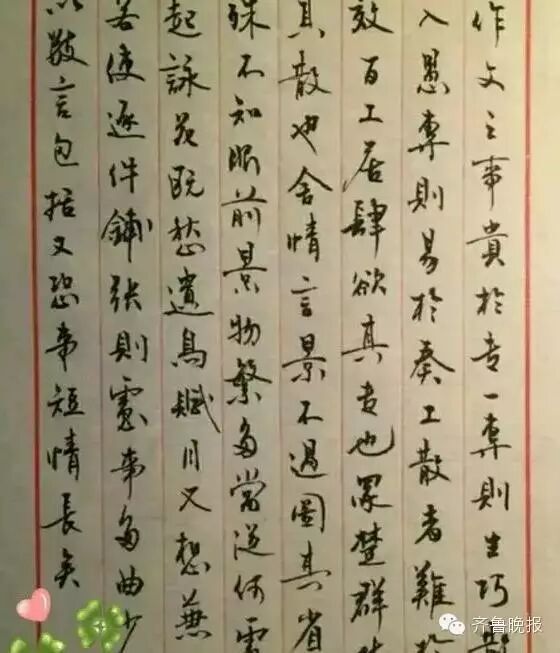 作文之事貴於专一專則生巧散
入愚專則易於奏工散者難於
效百工居肆欲其专也眾楚群
其散也舍情言景不過圖其省
殊不知眼前景物繁多當從何處
起詠花既愁遺鳥賦月又想兼
若使逐件鋪張則慮事多曲少
以數言包括又恐事短情長矣
齐鲁晚报